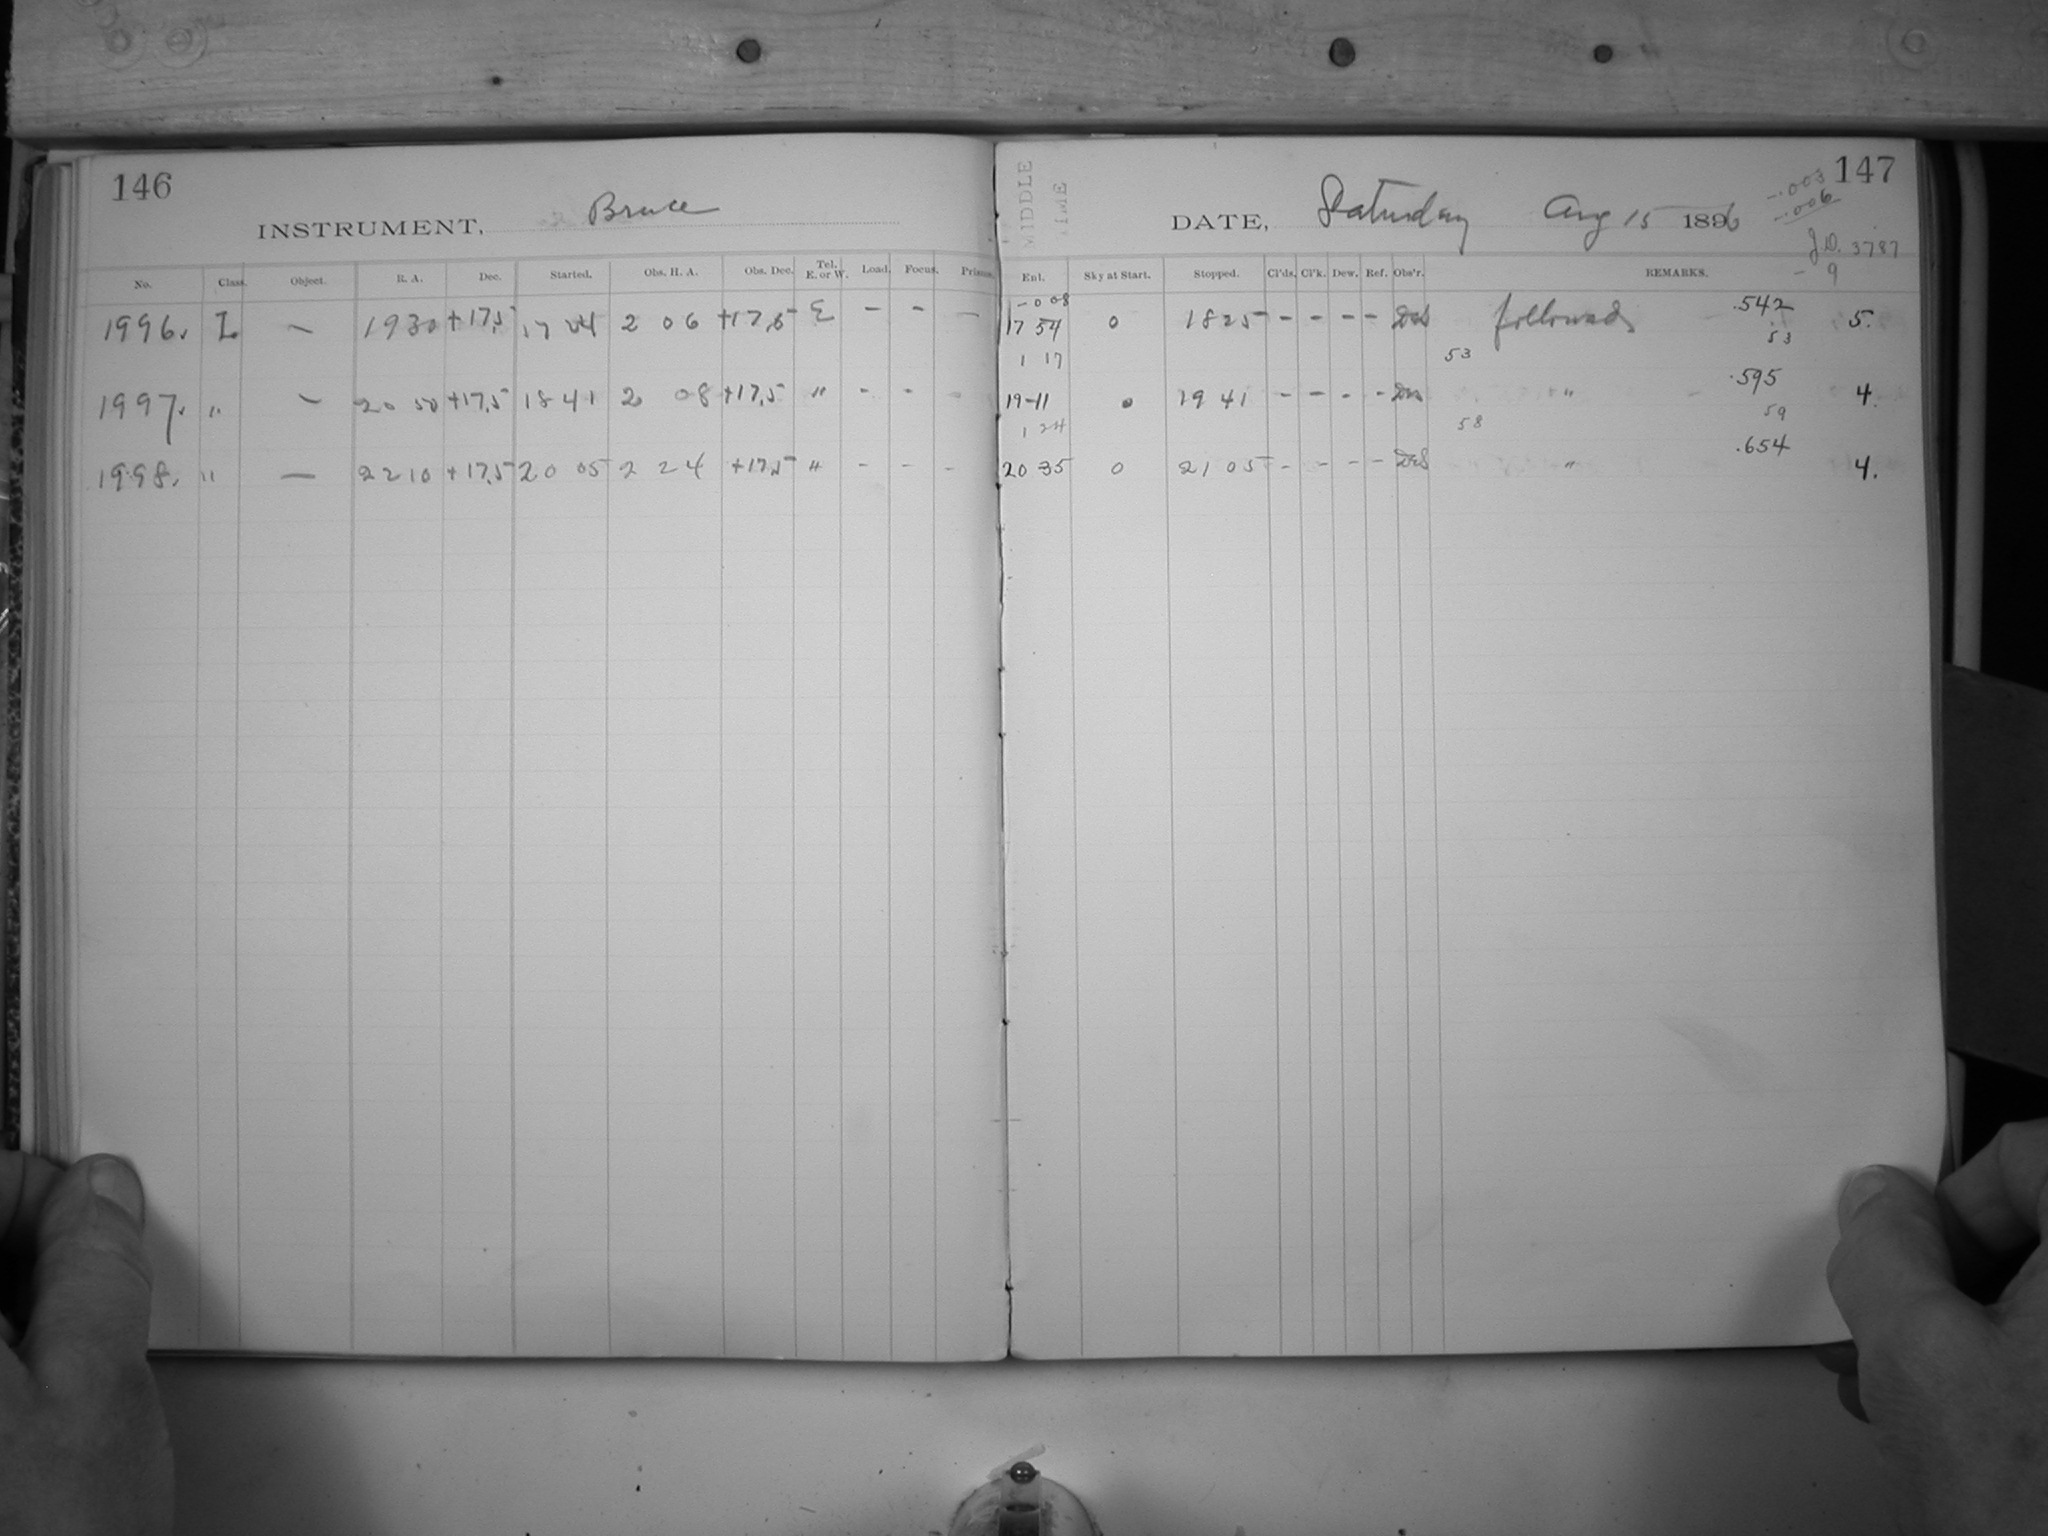 146
INSTRUMENT, Bruce
No. Class. Object. R. A. Dec. Started. Obs. H. A. Obs. Dec. Tel. E. or W. Load. Focus.
1996. L — 1930 +17,5 17 24 2 06 +17,5 E - - -
1997. " — 20 50 +17,5 18 41 2 08 +17,5 " - - -
1998. " — 22 10 +17,5 20 05 2 24 +17,5 " - - -
MIDDLE
TIME
147
DATE, Saturday Aug 15 1896
-.003
-.006
J.D. 3787
- 9
Enl. Sky at Start. Stopped. Cl'ds. Cl'k. Dew. Ref. Obs'r. REMARKS.
-008
17 54 0 18 25 - - - - followed .542 5.
1 17 53 53
19-11 0 19 41 - - - - " .595 4.
1 24 58 59
20 35 0 21 05 - - - - " .654 4.